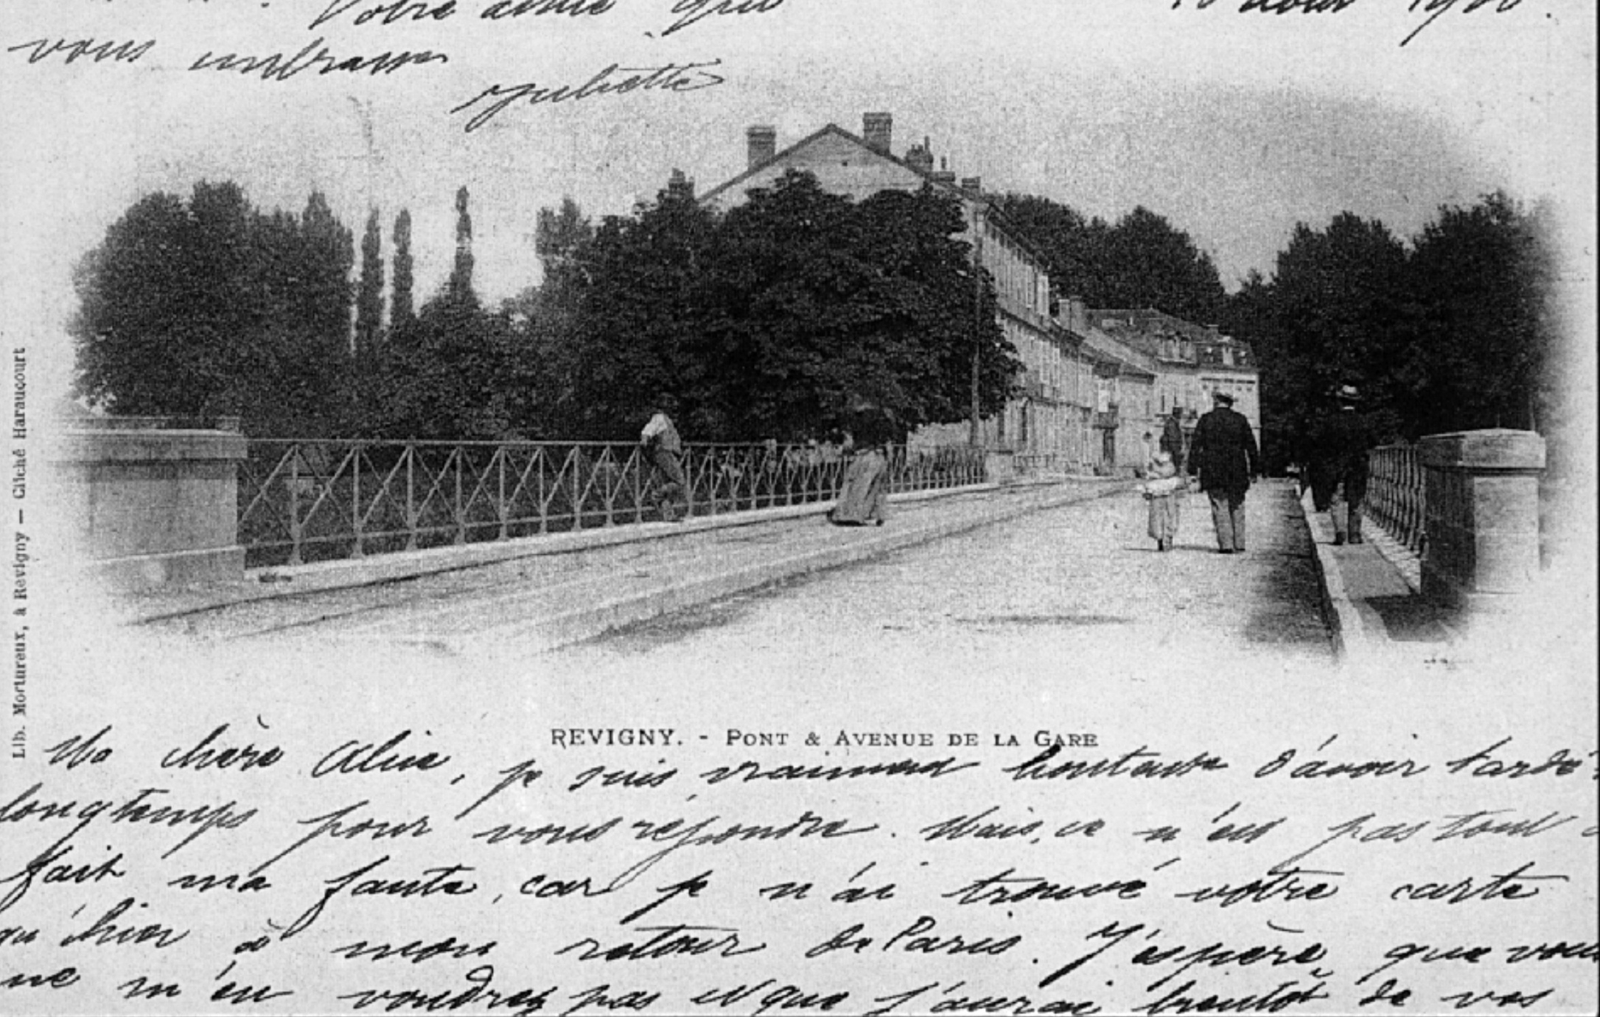 Votre amie qui
vous embrasse
Juliette
août 1900.
Lib. Mortureux, à Revigny — Cliché Haraucourt
REVIGNY. - PONT & AVENUE DE LA GARE
Ma chère Alice, je suis vraiment honteuse d'avoir tardé
longtemps pour vous répondre. Mais, ce n'est pas tout à
fait ma faute, car je n'ai trouvé votre carte
qu'hier à mon retour de Paris. J'espère que vous
ne m'en voudrez pas et que j'aurai bientôt de vos